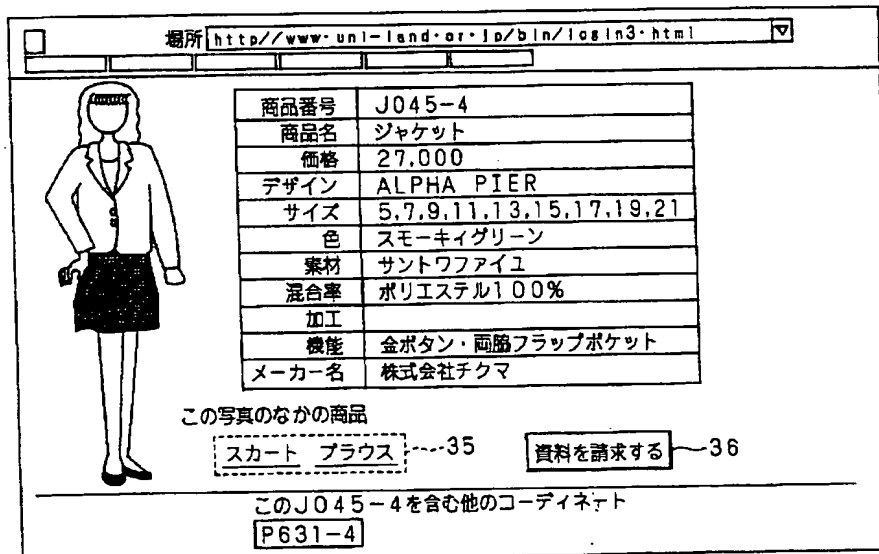 場所 http//www·uni-land·or·jp/bin/login3·html
商品番号 J045-4
商品名 ジャケット
価格 27,000
デザイン ALPHA PIER
サイズ 5,7,9,11,13,15,17,19,21
色 スモーキィグリーン
素材 サントワファイユ
混合率 ポリエステル100%
加工
機能 金ボタン・両脇フラップポケット
メーカー名 株式会社チクマ
この写真のなかの商品
スカート ブラウス 35 資料を請求する 36
このJ045-4を含む他のコーディネート
P631-4